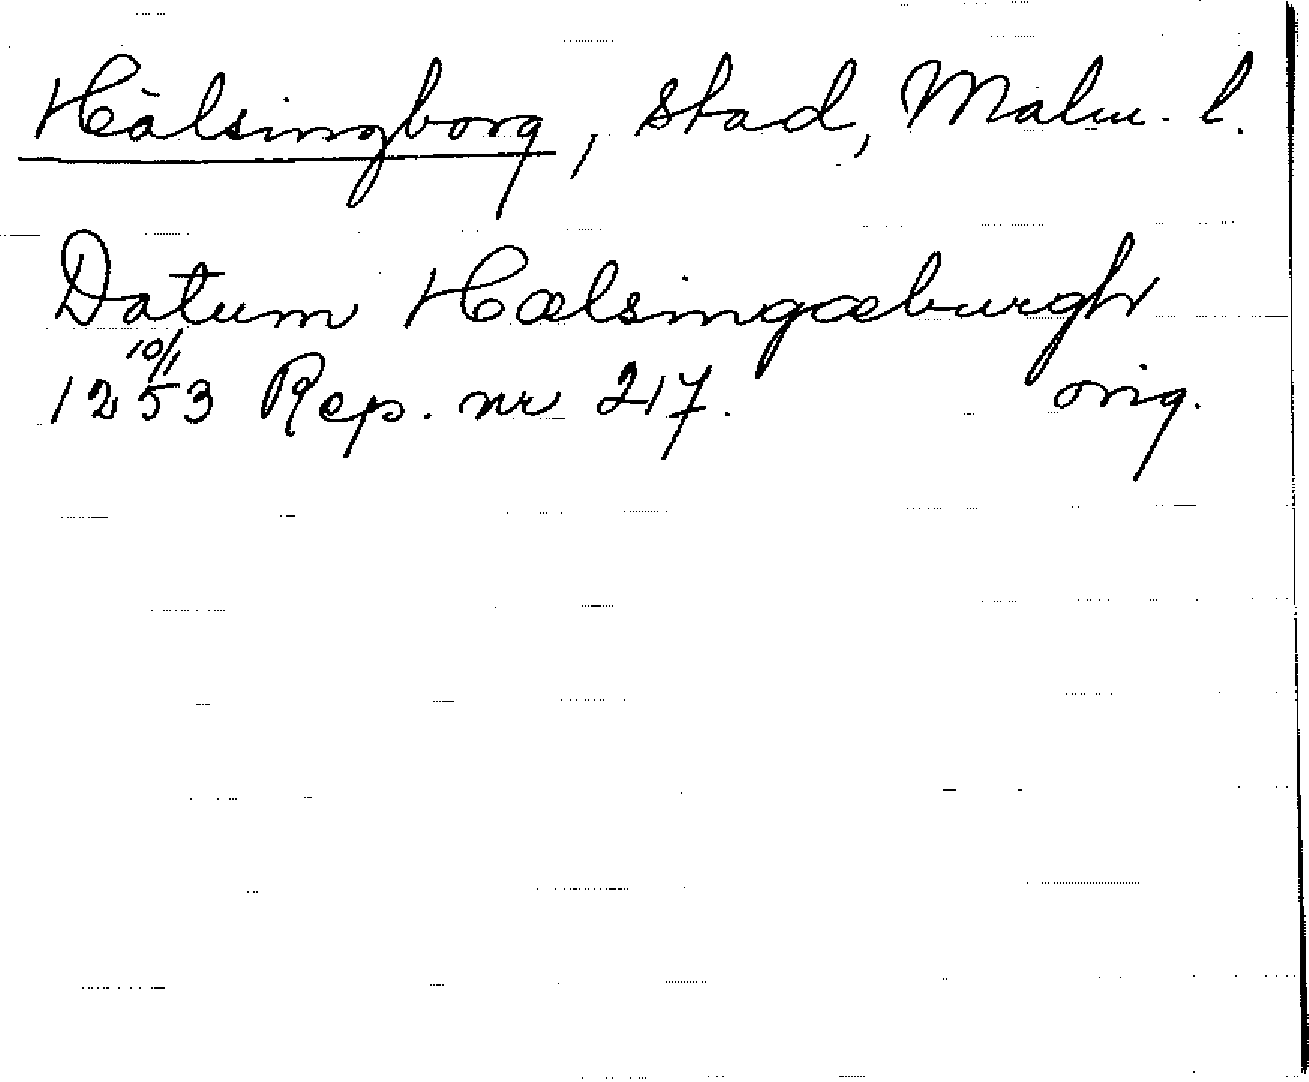 Hälsingborg, stad, Malm. l.
Datum Hælsingæburgh
10/1
1253 Rep. nr 217. orig.